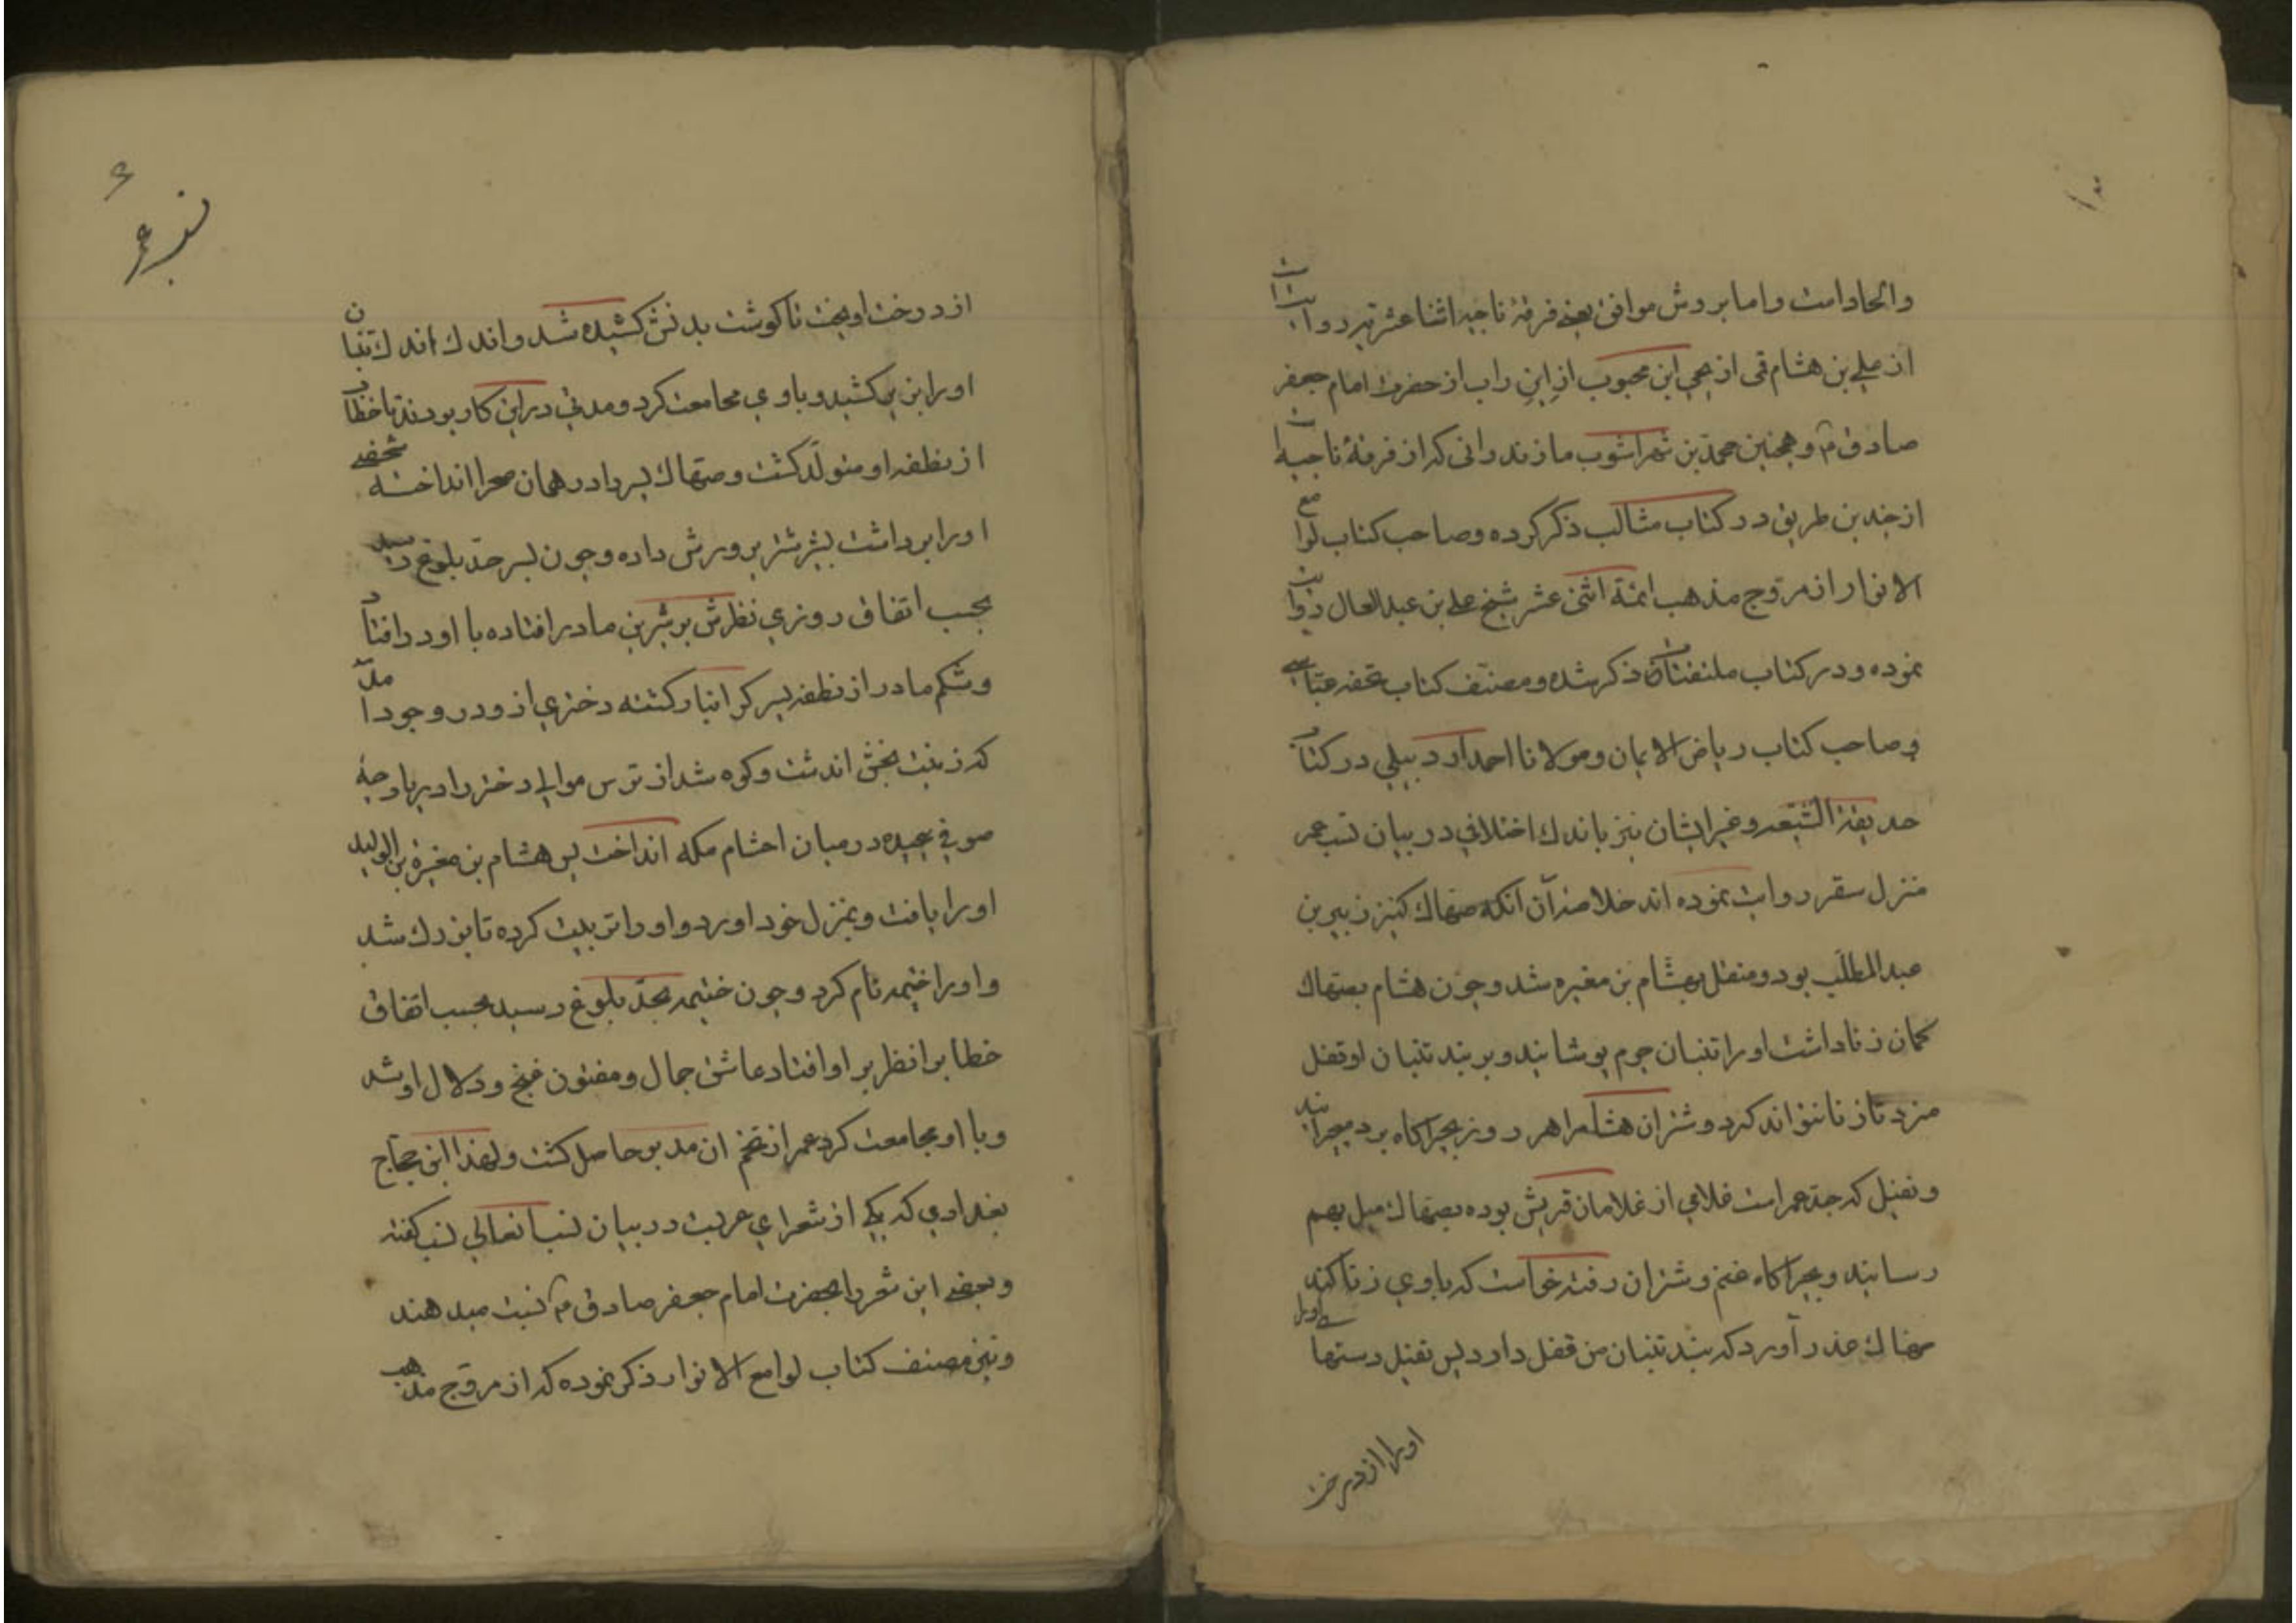 والحاد امت واما بروش موافق یعنی فرقهٔ ناجیه اثنا عشریه روایت
از علی بن هشام قمی از یحیی ابن محبوب از ابن راب از حضرت امام جعفر
صادق م و همچنین محمد بن شهراشوب مازندرانی که از فرقهٔ ناجیه
از چندین طریق در کتاب مثالب ذکر کرده وصاحب کتاب لوامع
الانوار از مروج مذهب ائمة اثنی عشر شیخ علی بن عبدالعال روایت
نموده ودر کتاب ملتقتات ذکر شده ومصنّف کتاب تحفه عبّاسی
وصاحب کتاب ریاض الایمان ومولانا احمد اردبیلی در کتاب
حدیقة الشیعه وغیرایشان نیز باندك اختلافی در بیان نسب عمر
منزل سقر روایت نموده اند خلاصه آن آنکه صهاك کنیز زبیر بن
عبدالمطلّب بود ومنتقل بهشام بن مغیره شد وچون هشام بصهاك
کمان زنا داشت اورا تنبان چرم پوشانید وبربند تنبان او قفل
مزد تا زنا نتواند کرد وشتران هشام را هر روز بچراکاه برد میچرانید
ونفیل که جد عمر است غلامی از غلامان قریش بوده بصهاك میل بهم
رسانید وبچراکاه غنم وشتران رفته خواست که باوی زنا کند
صهاك عذر آورد که بند تنبان من قفل دارد پس نفیل دستهای اورا
اورا از درخت
از درخت اویخت تا کوشت بدنش کشیده شد واندك اندك تنبان
اورا بزیر کشید وباوی مجامعت کرد ومدتی در این کار بودند تا خطاب
از نطفه او متولّد کشت وصهاك پسر را در همان صحرا انداخته شخصی
اورا برداشت بشیر شتر پرورش داده وچون پسر حدّ بلوغ رسید
بحسب اتفاق روزی نظرش بر شیرین مادر افتاده با او در افتاد
وشکم مادر از نطفه پسر کرانبار کشته دختری از ودر وجود امد
که زینت بخش اندشت وکوه شد از ترس موالی دختر را در پارچهٔ
صوفی پیچیده در میان احشام مکه انداخت پس هشام بن مغیرة بن الولید
اورا یافت وبمنزل خود اورد واورا تربیت کرده تا بزرك شد
واورا ختیمه نام کرد وچون ختیمه بحدّ بلوغ رسید بحسب اتفاق
خطاب را نظر بر او افتاد عاشق جمال ومفتون غنج ودلال او شد
وبا او مجامعت کرد عمر از تخم ان مدبر حاصل کشت ولهذا ابن حجّاج
بغدادی که یکی از شعرای عربست در بیان نسب انعالی نسب کفته
وبعضی این شعر را بحضرت امام جعفر صادق م نسبت میدهند
ونیز مصنف کتاب لوامع الانوار ذکر نموده که از مروج مذهب